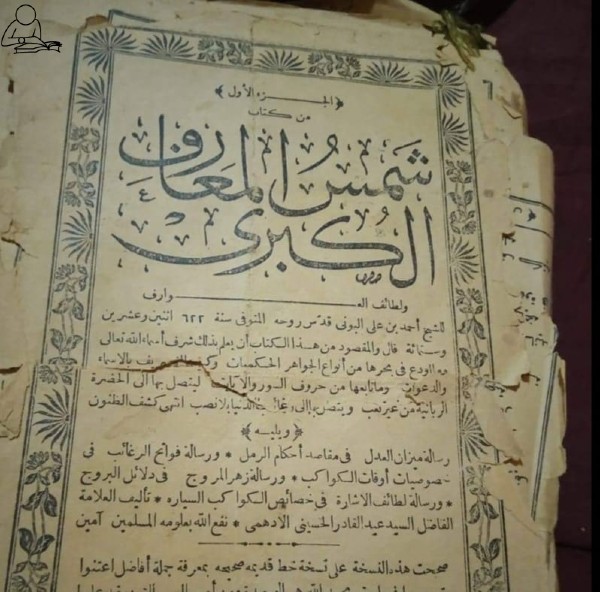 ﴿ الجزء الأول ﴾
من كتاب
شمس المعارف
الكبرى
ولطائف العوارف
للشيخ أحمد بن على البونى قدس روحه المتوفى سنة ٦٢٢ اثنين وعشرين
وستمائة قال والمقصود من هذا الكتاب أن يعلم بذلك شرف أسماء الله تعالى
وما أودع فى بحرها من أنواع الجواهر الحكميات وكيف التصريف بالاسماء
والدعوات وما تابعها من حروف السور والآيات ليتصل بها الى الحضرة
الربانية من غير تعب ويتصل بها الى رغائب الدنيا بلا نصب انتهى كشف الظنون
﴿ ويليه ﴾
رسالة ميزان العدل فى مقاصد أحكام الرمل * ورسالة فواتح الرغائب فى
خصوصيات أوقات الكواكب * ورسالة زهر المروج فى دلائل البروج
* ورسالة لطائف الاشارة فى خصائص الكواكب السياره * تأليف العلامة
الفاضل السيد عبد القادر الحسينى الادهمى * نفع الله بعلومه المسلمين آمين
صححت هذه النسخة على نسخة خط قديمه صحيحه بمعرفة جملة أفاضل اعتنوا